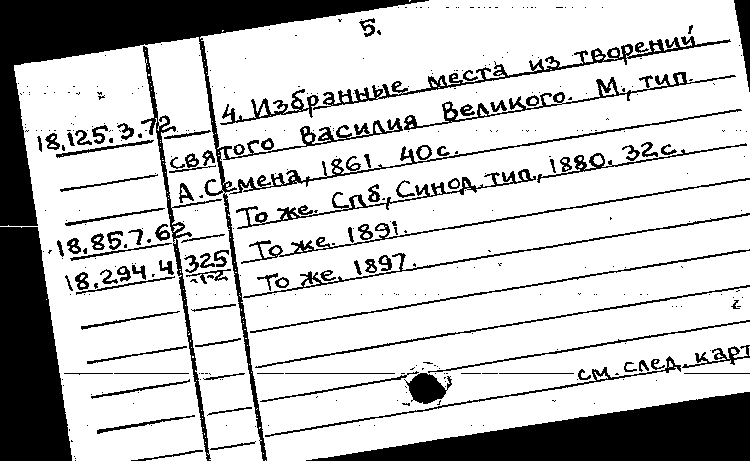 5.
4. Избранные места из творений
18.125.3.72
святого Василия Великого. М., тип.
А. Семена, 1861. 40 с.
То же. Спб., Синод. тип., 1880. 32 с.
18.85.7.62 То же. 1891.
18.294.4 325 То же. 1897.
1-2
см. след. карт